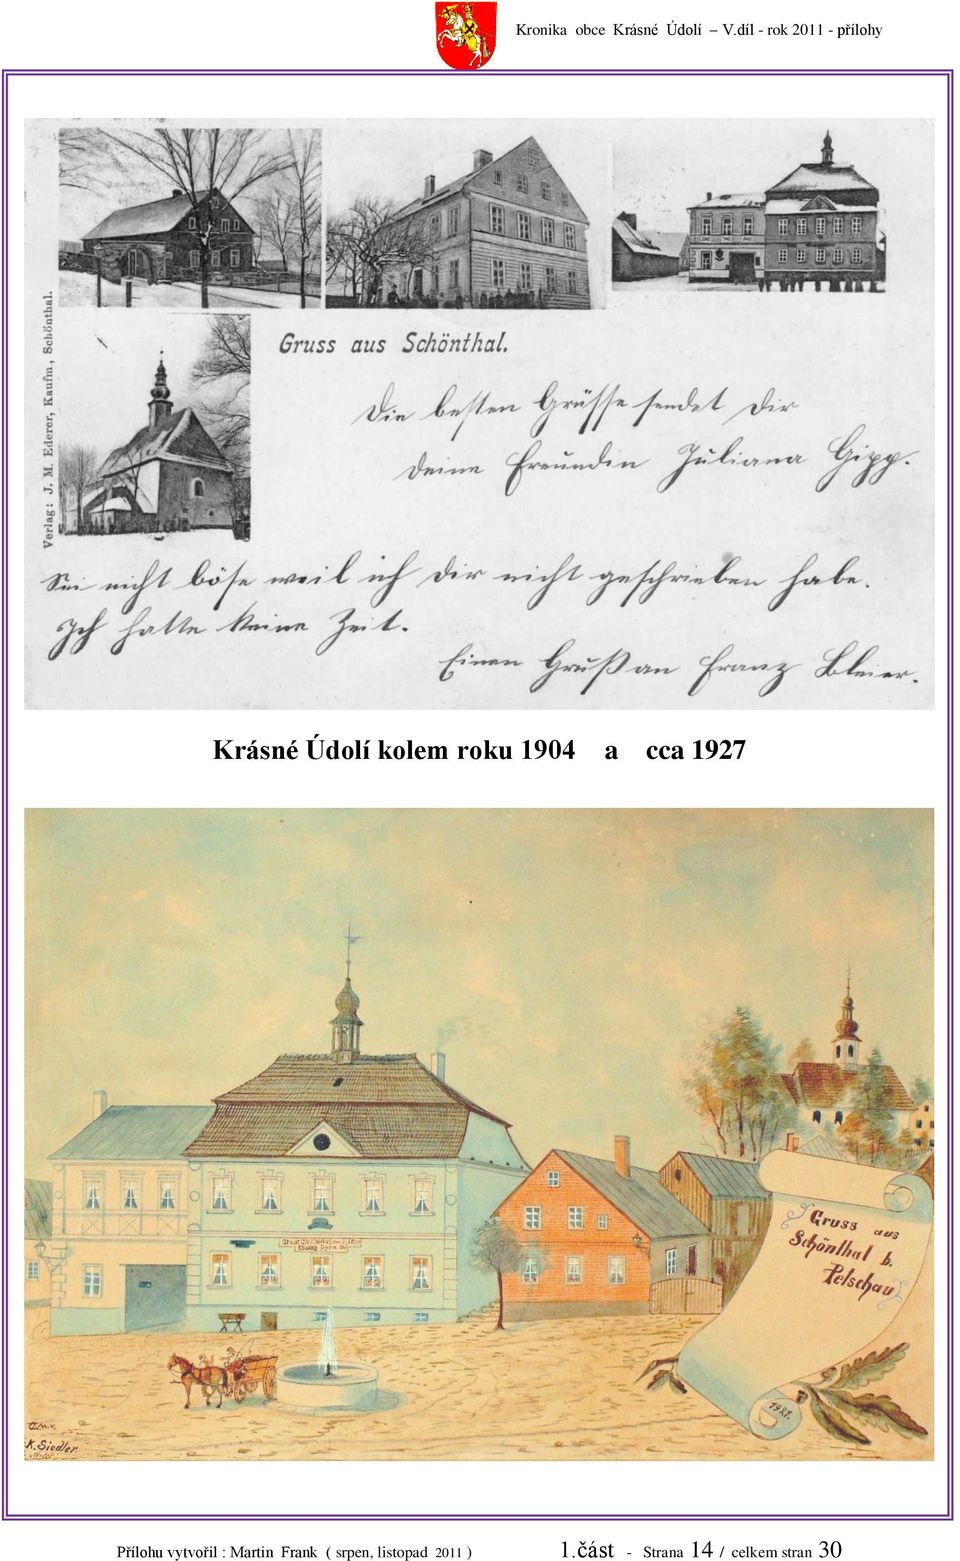 Kronika obce Krásné Údolí – V.díl - rok 2011 - přílohy
Verlag: J. M. Ederer, Kaufm., Schönthal.
Gruss aus Schönthal.
Die besten Grüsse sendet Dir
deine Freundin Juliana Gipp.
Sei nicht böse weil ich Dir nicht geschrieben habe.
Ich hatte keine Zeit.
Einen Gruß an Franz Bleier.
Krásné Údolí kolem roku 1904 a cca 1927
Gruss aus
Schönthal b.
Petschau
1927.
K. Siedler
Přílohu vytvořil : Martin Frank ( srpen, listopad 2011 ) 1.část - Strana 14 / celkem stran 30